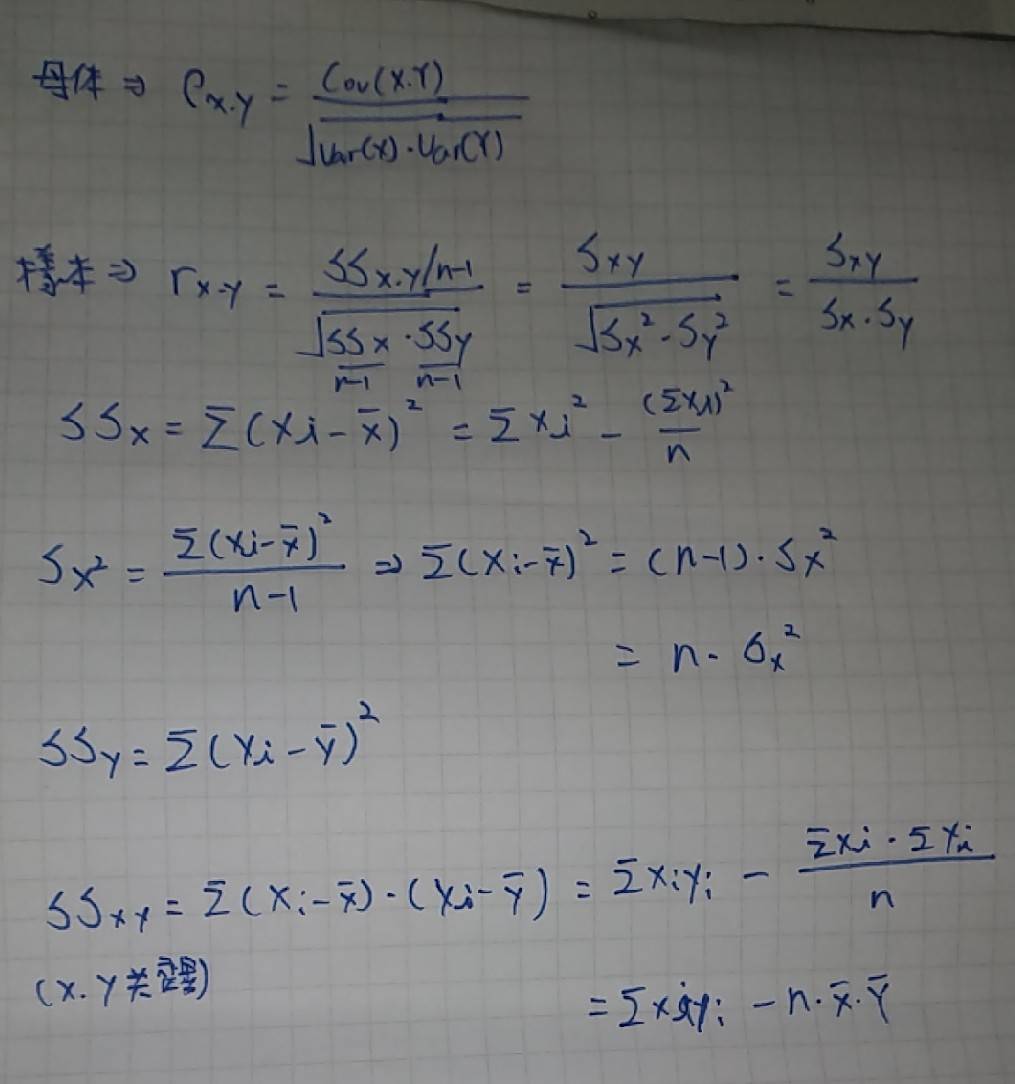 母体 ⇒ ρx.y = Cov(X.Y) / √(Var(X)·Var(Y))
樣本 ⇒ rx.y = (SSx.y/n-1) / √(SSx/n-1 · SSy/n-1) = Sxy / √(Sx²·Sy²) = Sxy / (Sx·Sy)
SSx = Σ(Xi - x̄)² = ΣXi² - (ΣXi)²/n
Sx² = Σ(Xi - x̄)² / (n-1) ⇒ Σ(Xi - x̄)² = (n-1)·Sx²
= n·σx²
SSy = Σ(Yi - ȳ)²
SSxy = Σ(Xi - x̄)·(Yi - ȳ) = Σxiyi - (Σxi·ΣYi)/n
(X.Y关
= Σxiyi - n·x̄·ȳ